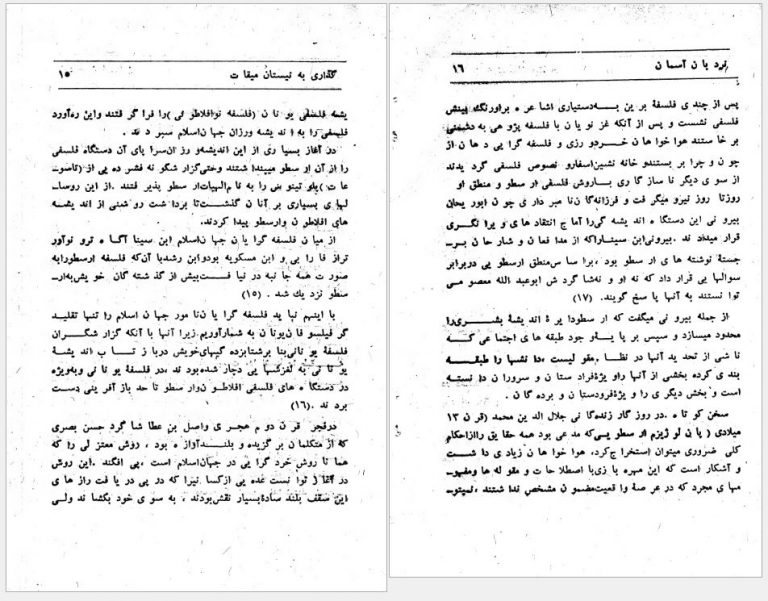 گذاری به نیستان میقات ۱۵
یشه فلسفی یونان (فلسفه نوافلاطونی) را فراگرفتند واین رهآورد
فلسفی را به اندیشه ورزان جهان اسلام سپردند.
در آغاز بسیاری از این اندیشه‌ورزان سراپای آن دستگاه فلسفی
را از آن ارسطو میپنداشتند وحتی گزارشگونه فشرده یی از (تاسوعات)
عات) پلوتینوس را به نام الهیات ارسطو پذیرفتند .از این روسا-
لهای بسیاری بر آنان گذشت تا برداشت روشنی از اندیشه
های افلاطون وارسطو پیدا کردند.
از میان فلسفه گرایان جهان اسلام ابن سینا آگاه ترو نوآور
تراز فارابی و ابن مسکویه بود وابن رشد با آن که فلسفه ارسطورا به
صورت همه جانبه دریافت بیش از گذشته گان خویش به ار-
سطو نزدیك شد. (۱۵)
با اینهم نباید فلسفه گرایان نامور جهان اسلام را تنها تقلید
گر فیلسوفان یونان به شمار آوریم زیرا آنها با آنکه گزارشگران
فلسفه یونانی بنا بر شتابزده گیهای خویش در بازتاب اندیشه
یونانی به لغزشهایی دچار شده بودند ،در فلسفه یونانی و به ویژه
در دستگاه های فلسفی افلاطون و ارسطو تا حد باز آفرینی دست
بردند .(۱۶)
در فجر قرن دوم هجری واصل بن عطا شاگرد حسن بصری
که از متکلمان برگزیده و بلند آوازه بود ، روش معتزلی را که
همانا روش خرد گرایی در جهان اسلام است ،پی افگند .این روش
در آغاز توانست عده یی از کسانیرا که در پی دریافت رازهای
این سقف بلند ساده بسیار نقش بودند ، به سوی خود بکشاند ولی
نردبان آسمان ۱۶
پس از چندی فلسفۀ برین به دستیاری اشاعره براورنگ بینش
فلسفی نشست و پس از آنکه غزنویان با فلسفه پژوهی به دشمنی
برخاستند هواخواهان خردورزی و فلسفه گرایی دهان از
چون و چرا بر بستند و خانه نشین اسفار و نصوص فلسفی گردیدند
از سوی دیگر ناسازگاری با روش فلسفی ارسطو و منطق او
روز تا روز نیرو میگرفت و فرزانه گان نامبرداری چون ابوریحان
بیرونی این دستگاه اندیشه گی را آماج انتقادهای ویرانگری
قرار میدادند .بیرونی ابن سینا را که از مدافعان و شارحان بر-
جستۀ نوشته های ارسطو بود ، بر اساس منطق ارسطویی در برابر
سوالهایی قرار داد که نه او و نه شاگردش ابوعبد الله معصومی
توانستند به آنها پاسخ گویند. (۱۷)
از جمله بیرونی میگفت که ارسطو دایرۀ اندیشۀ بشری را
محدود میسازد و سپس بر پایۀ وجود طبقه های اجتماعی که
ناشی از تحدید آنها در نظام مقولیست ،دانشها را طبقه
بندی کرده بخشی از آنها را ویژۀ فرادستان و سروران دانسته
است و بخش دیگری را ویژۀ فرودستان و برده گان.
سخن کوتاه ،در روزگار زنده‌گانی جلال الدین محمد (قرن ۱۳
میلادی) پانلوژیزم ارسطویی که مدعی بود همه حقایق را از احکام
کلی ضروری میتوان استخراج کرد، هواخواهان زیادی داشت
و آشکار است که این مهره بازی با اصطلاحات و مقوله ها و مفهو-
مهای مجرد که در عرصۀ واقعیت مضمون مشخص نداشتند ،نمیتو-